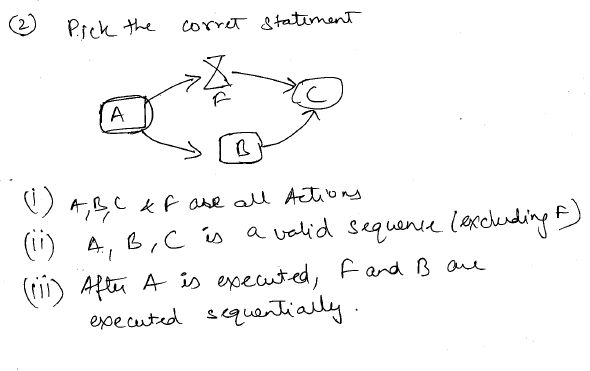 (2) Pick the corret statement
F
C
A
B
(i) A, B, C & F are all Actions
(ii) A, B, C is a valid sequence (excluding F)
(iii) After A is executed, F and B are
executed sequentially.